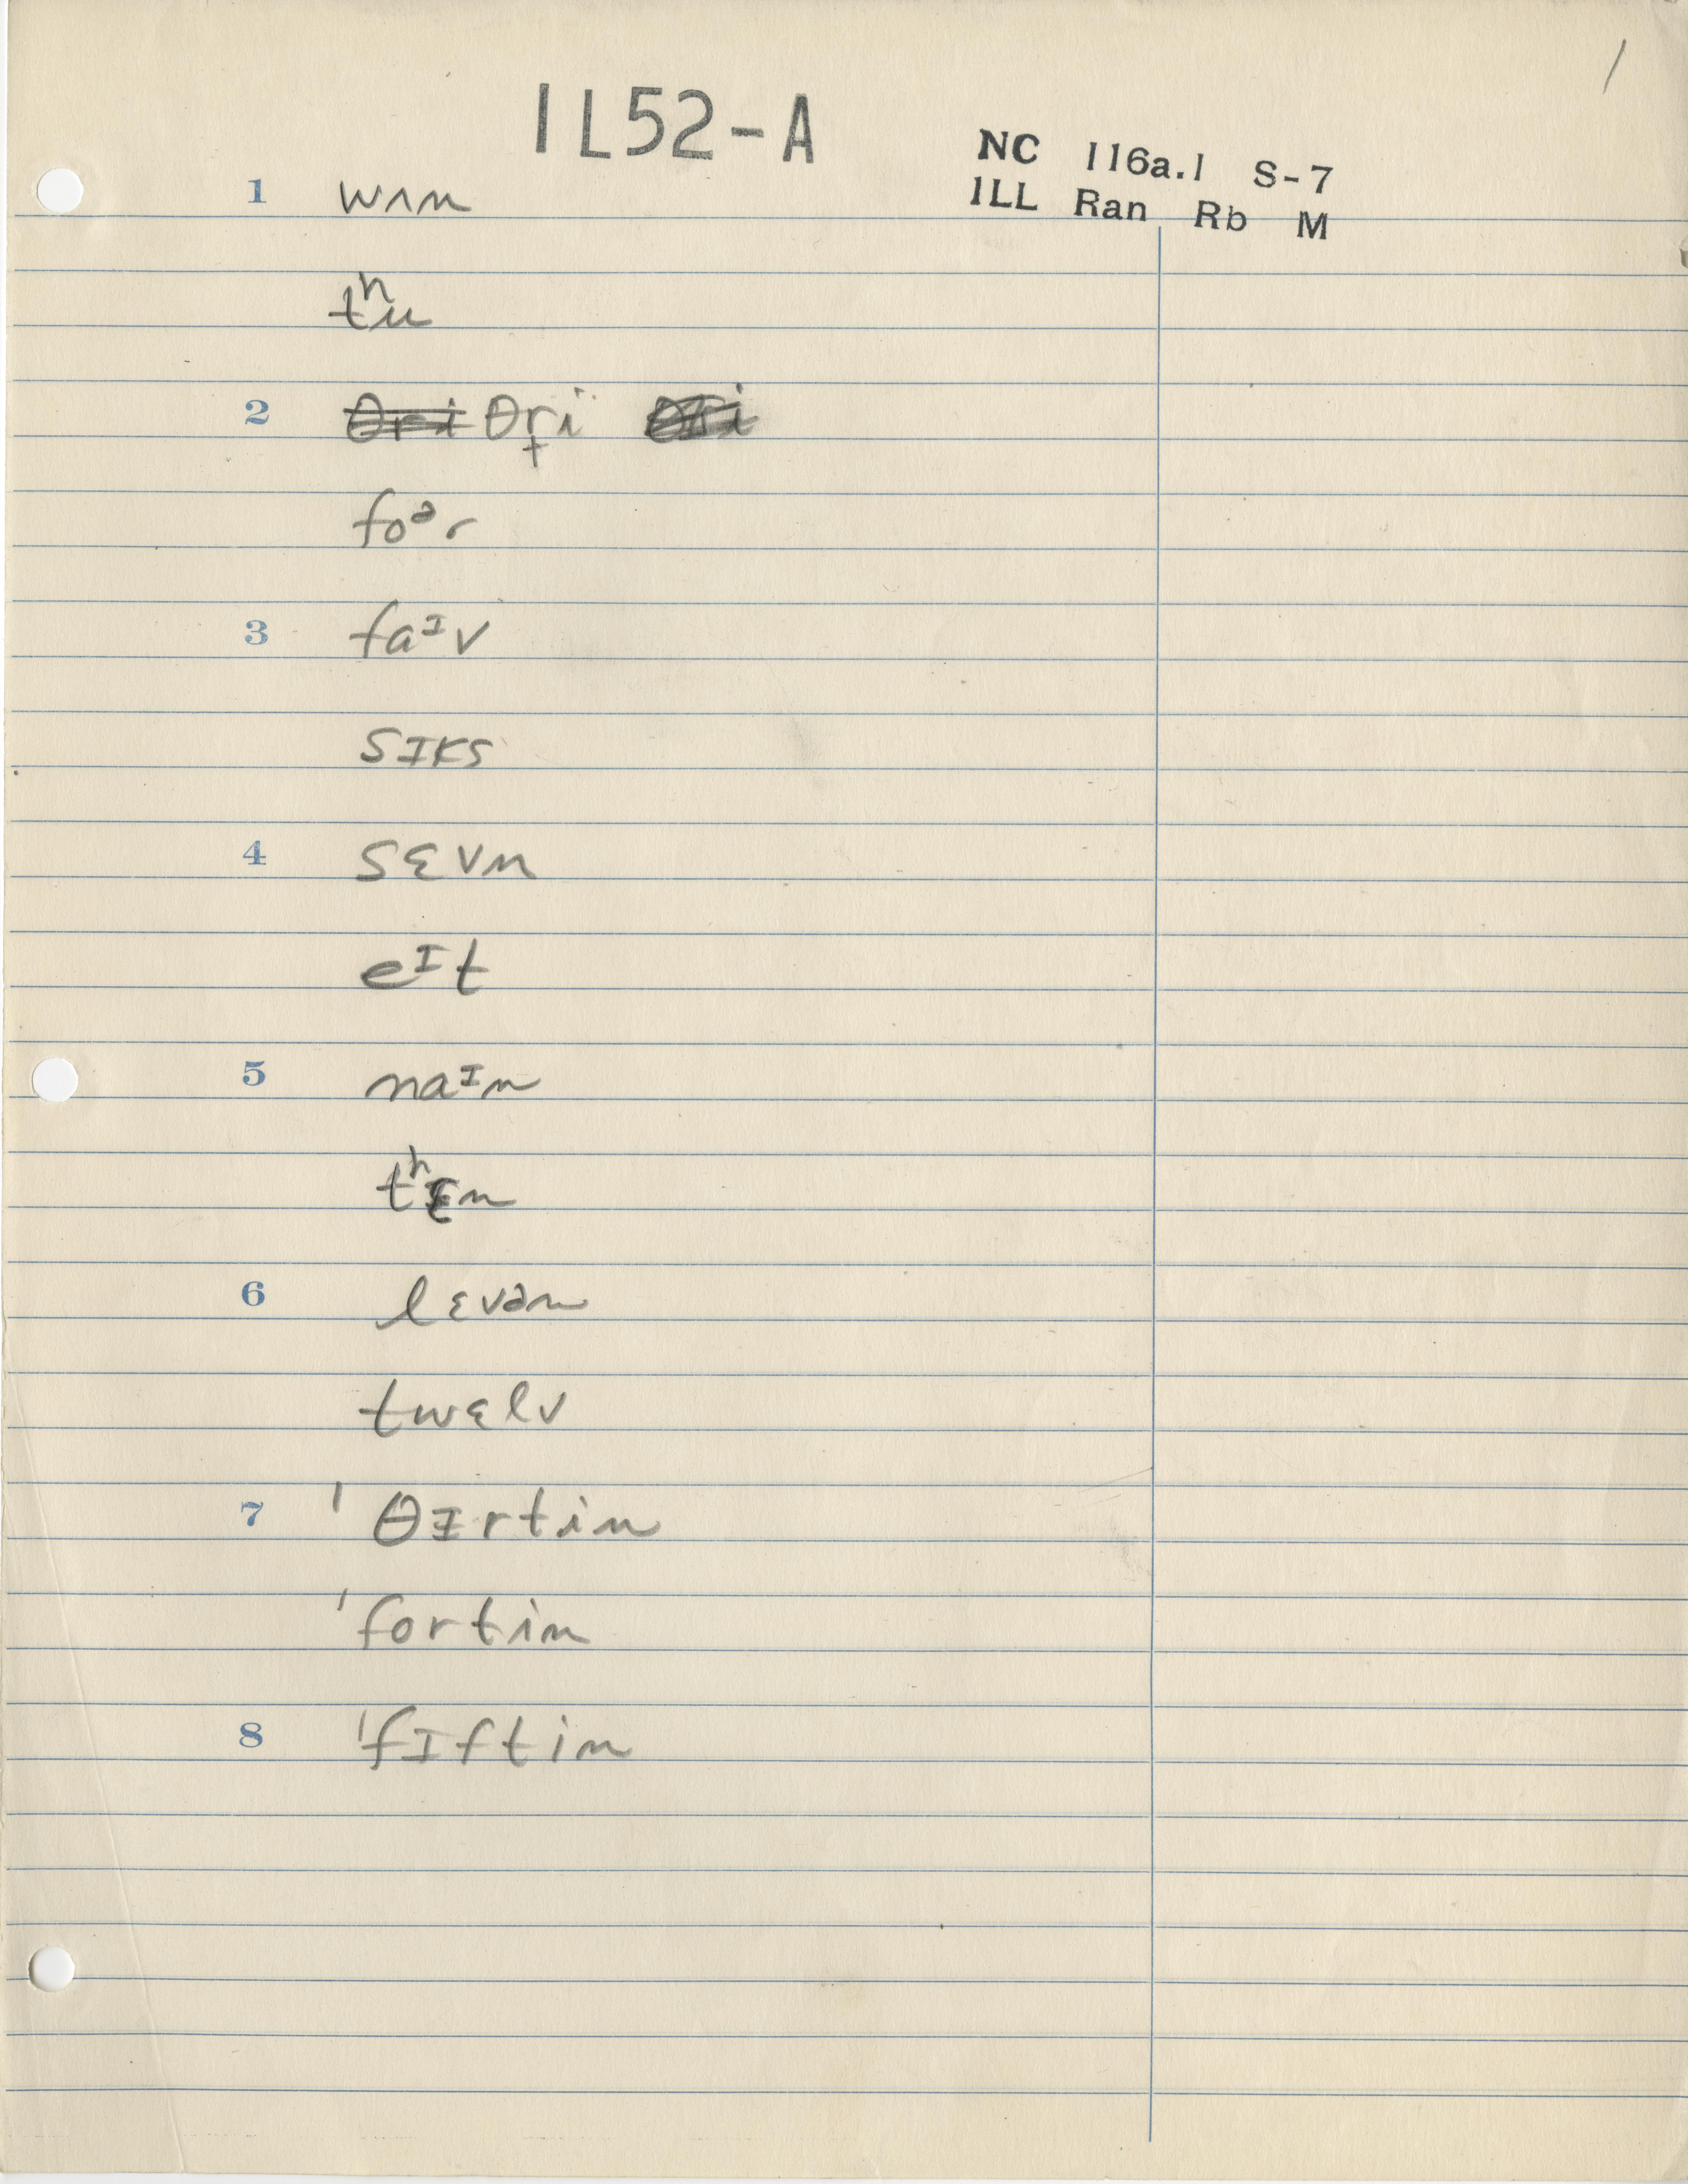 /
1L52-A
NC 116a.1 S-7
ILL Ran Rb M
1 wʌn
tʰu
2 θri θr̟i θri
foᵊr
3 faᶦv
sɪks
4 sɛvn
eᶦt
5 naᶦn
tʰɛn
6 lɛvən
twɛlv
7 ˈθɪrtin
ˈfortin
8 ˈfɪftin